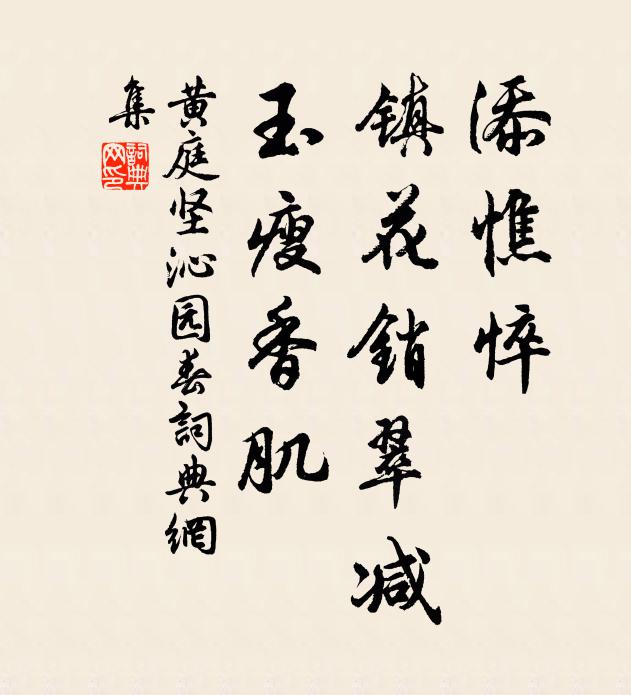 添憔悴
镇花銷翠减
玉瘦香肌
黄庭坚沁园春詞典網
集
詞典
网印